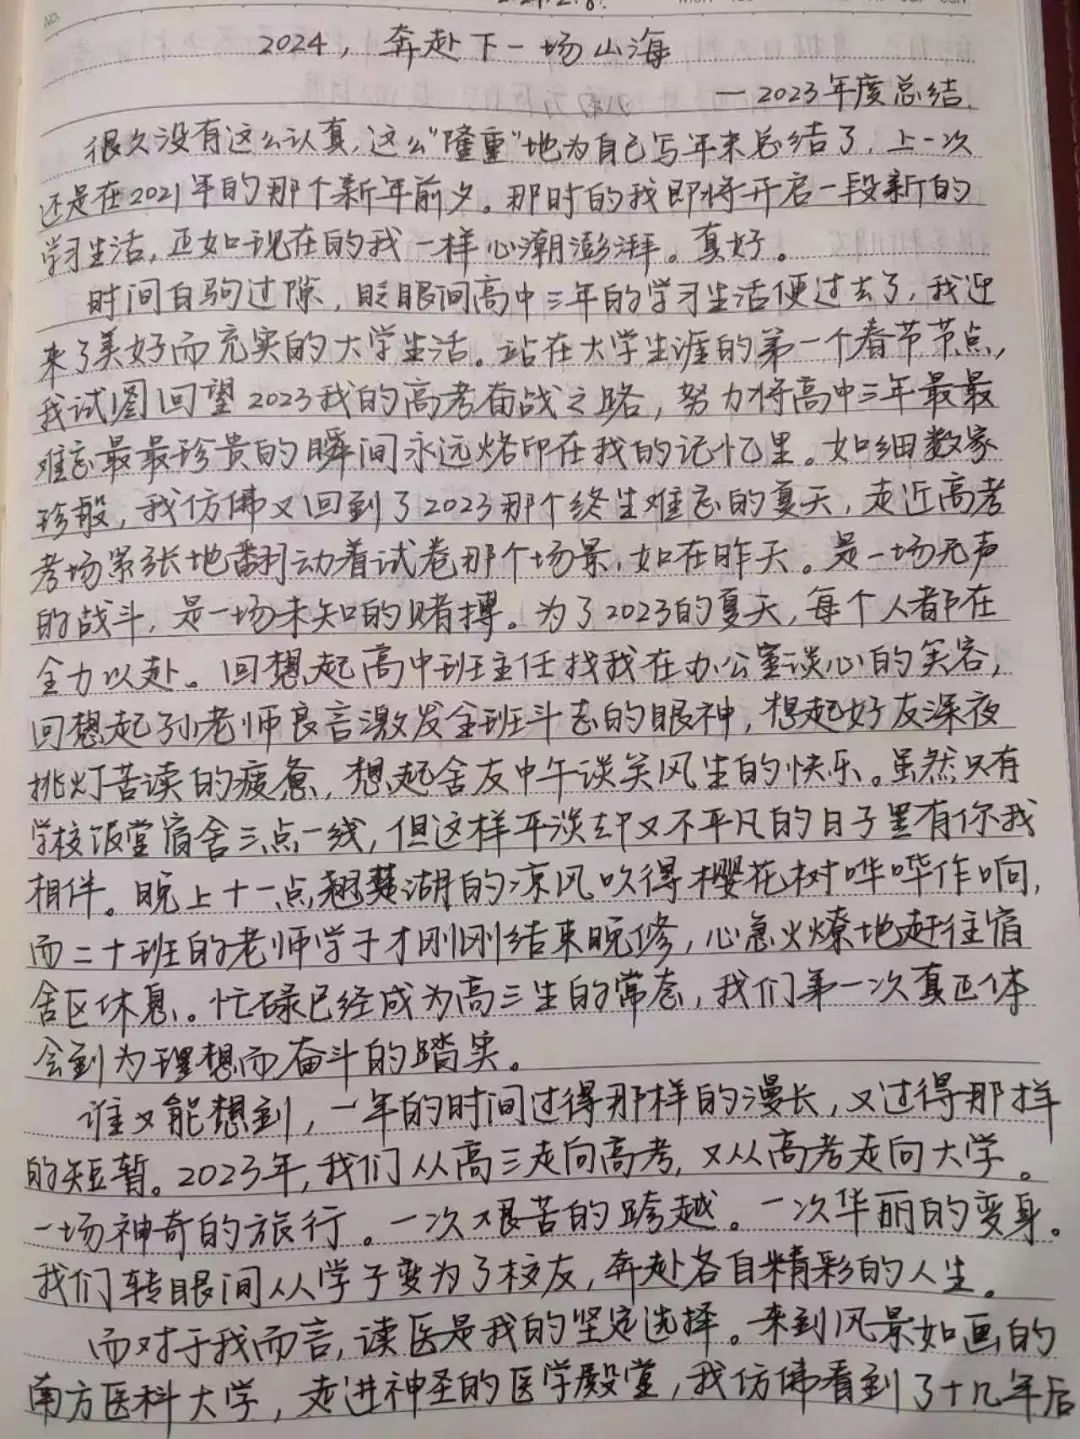 NO.
2024，奔赴下一场山海
—2023年度总结.
很久没有这么认真,这么“隆重”地为自己写年末总结了，上一次
还是在2021年的那个新年前夕。那时的我即将开启一段新的
学习生活,正如现在的我一样心潮澎湃。真好。
时间白驹过隙，眨眼间高中三年的学习生活便过去了，我迎
来了美好而充实的大学生活。站在大学生涯的第一个春节节点,
我试图回望2023我的高考奋战之路，努力将高中三年最最
难忘最最珍贵的瞬间永远烙印在我的记忆里。如细数家
珍般，我仿佛又回到了2023那个终生难忘的夏天，走近高考
考场紧张地翻动着试卷那个场景,如在昨天。是一场无声
的战斗，是一场未知的赌搏。为了2023的夏天，每个人都在
全力以赴。回想起高中班主任找我在办公室谈心的笑容，
回想起孙老师良言激发全班斗志的眼神，想起好友深夜
挑灯苦读的疲惫，想起舍友中午谈笑风生的快乐。虽然只有
学校饭堂宿舍三点一线，但这样平淡却又不平凡的日子里有你我
相伴。晚上十一点,翘慧湖的凉风吹得樱花树哗哗作响，
而二十班的老师学子才刚刚结束晚修，心急火燎地赶往宿
舍区休息。忙碌已经成为高三生的常态，我们第一次真正体
会到为理想而奋斗的踏实。
谁又能想到，一年的时间过得那样的漫长，又过得那样
的短暂。2023年，我们从高三走向高考，又从高考走向大学。
一场神奇的旅行。一次艰苦的跨越。一次华丽的变身。
我们转眼间从学子变为了校友，奔赴各自精彩的人生。
而对于我而言，读医是我的坚定选择。来到风景如画的
南方医科大学，走进神圣的医学殿堂，我仿佛看到了十几年后